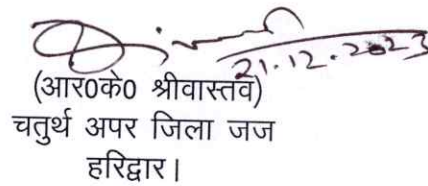 21.12.2023
(आर0के0 श्रीवास्तव)
चतुर्थ अपर जिला जज
हरिद्वार।